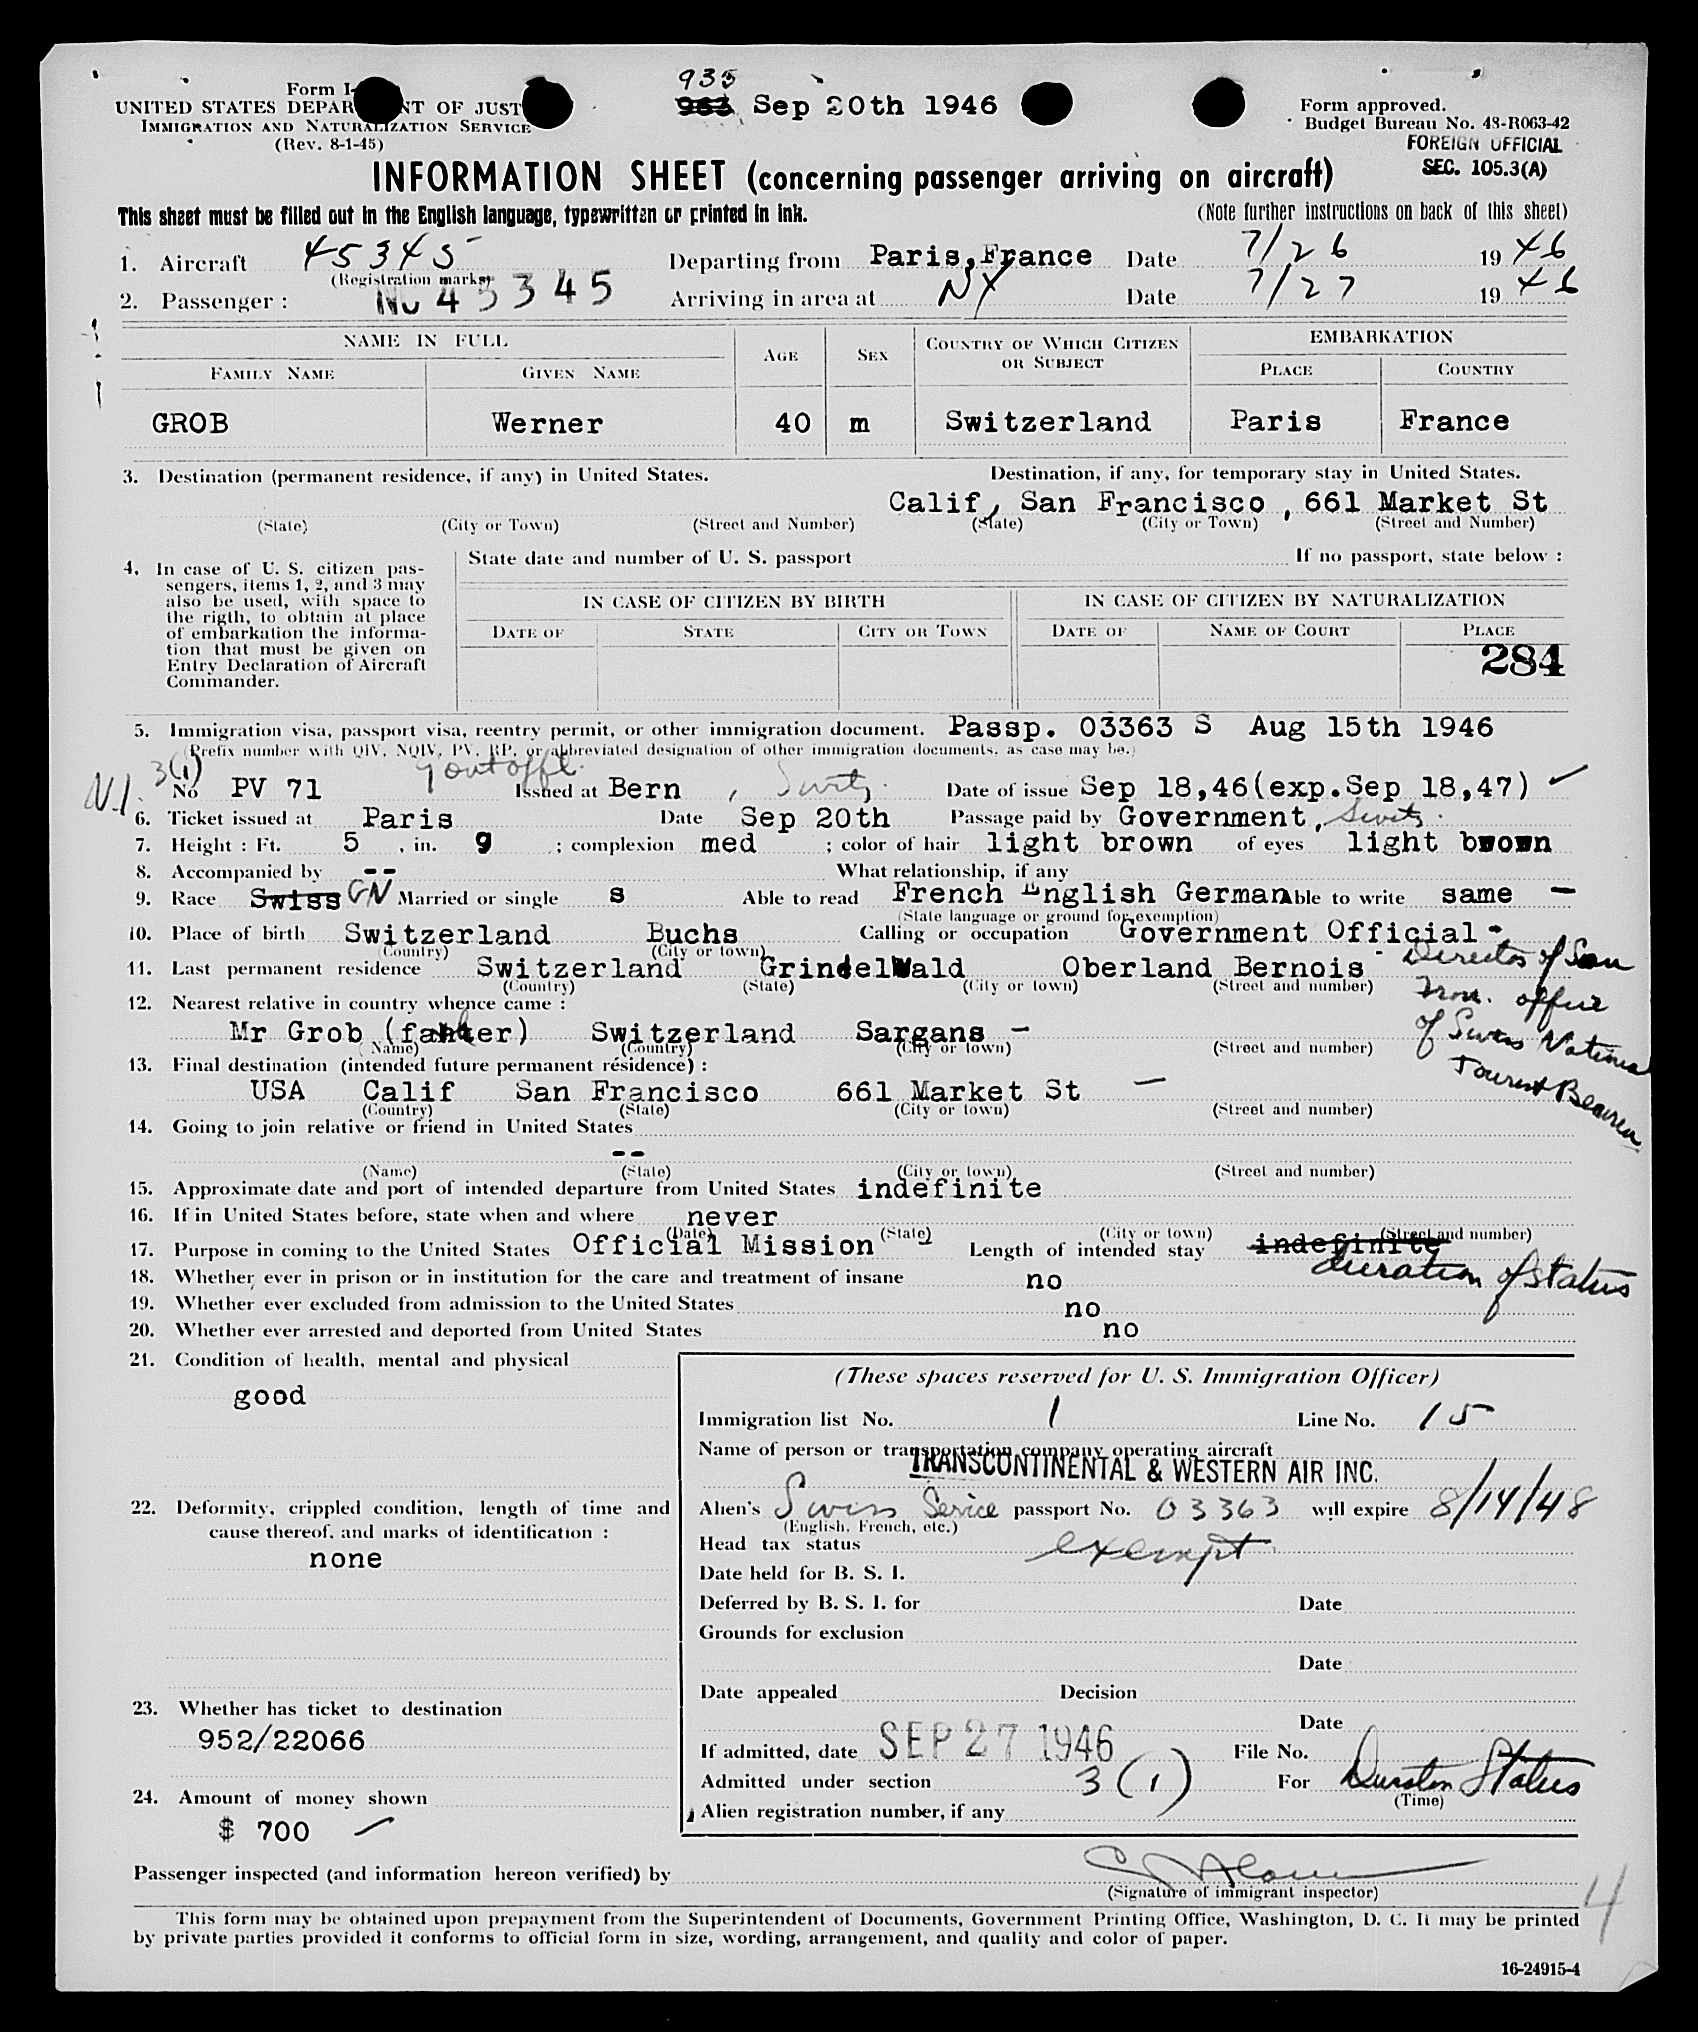 935
963 Sep 20th 1946
Form I-
UNITED STATES DEPAR NT OF JUST
IMMIGRATION AND NATURALIZATION SERVICE
(Rev. 8-1-45)
Form approved.
Budget Bureau No. 43-R063-42
FOREIGN OFFICIAL
SEC. 105.3(A)
INFORMATION SHEET (concerning passenger arriving on aircraft)
This sheet must be filled out in the English language, typewritten or printed in ink.
(Note further instructions on back of this sheet)
1. Aircraft 45345 Departing from Paris, France Date 7/26 1946
(Registration marks)
No 45345
2. Passenger : Arriving in area at NY Date 7/27 1946
NAME IN FULL AGE SEX COUNTRY OF WHICH CITIZEN OR SUBJECT EMBARKATION
FAMILY NAME GIVEN NAME PLACE COUNTRY
GROB Werner 40 m Switzerland Paris France
3. Destination (permanent residence, if any) in United States. Destination, if any, for temporary stay in United States.
Calif, San Francisco , 661 Market St
(State) (City or Town) (Street and Number) (State) (City or Town) (Street and Number)
4. In case of U. S. citizen pas-
sengers, items 1, 2, and 3 may
also be used, with space to
the rigth, to obtain at place
of embarkation the informa-
tion that must be given on
Entry Declaration of Aircraft
Commander.
State date and number of U. S. passport If no passport, state below :
IN CASE OF CITIZEN BY BIRTH IN CASE OF CITIZEN BY NATURALIZATION
DATE OF STATE CITY OR TOWN DATE OF NAME OF COURT PLACE
284
5. Immigration visa, passport visa, reentry permit, or other immigration document. Passp. 03363 S Aug 15th 1946
(Prefix number with QIV, NQIV, PV, RP, or abbreviated designation of other immigration documents, as case may be.)
N.I. 3(1) Govt offl.
No PV 71 Issued at Bern , Switz. Date of issue Sep 18,46(exp.Sep 18,47)
6. Ticket issued at Paris Date Sep 20th Passage paid by Government, Switz.
7. Height : Ft. 5 , in. 9 ; complexion med ; color of hair light brown of eyes light brown
8. Accompanied by -- What relationship, if any
9. Race Swiss GN Married or single s Able to read French English German Able to write same —
(State language or ground for exemption)
10. Place of birth Switzerland Buchs Calling or occupation Government Official -
(Country) (City or town)
Director of San
Fran. office
of Swiss National
Tourist Beaurea
11. Last permanent residence Switzerland GrindelWald Oberland Bernois
(Country) (State) (City or town) (Street and number)
12. Nearest relative in country whence came :
Mr Grob (father) Switzerland Sargans —
(Name) (Country) (City or town) (Street and number)
13. Final destination (intended future permanent résidence) :
USA Calif San Francisco 661 Market St —
(Country) (State) (City or town) (Street and number)
14. Going to join relative or friend in United States
--
(Name) (State) (City or town) (Street and number)
15. Approximate date and port of intended departure from United States indefinite
16. If in United States before, state when and where never
(Date) (State) (City or town) (Street and number)
17. Purpose in coming to the United States Official Mission — Length of intended stay indefinite
duration of status
18. Whether ever in prison or in institution for the care and treatment of insane no
19. Whether ever excluded from admission to the United States no
20. Whether ever arrested and deported from United States no
21. Condition of health, mental and physical
good
22. Deformity, crippled condition, length of time and
cause thereof, and marks of identification :
none
23. Whether has ticket to destination
952/22066
24. Amount of money shown
$ 700
(These spaces reserved for U. S. Immigration Officer)
Immigration list No. 1 Line No. 15
Name of person or transportation company operating aircraft
TRANSCONTINENTAL & WESTERN AIR INC.
Alien's Swiss Serice passport No. 03363 will expire 8/14/48
(English, French, etc.)
Head tax status exempt
Date held for B. S. I.
Deferred by B. S. I. for Date
Grounds for exclusion
Date
Date appealed Decision
Date
If admitted, date SEP 27 1946 File No.
Admitted under section 3(1) For Duration Status
(Time)
Alien registration number, if any
Passenger inspected (and information hereon verified) by
(Signature of immigrant inspector)
4
This form may be obtained upon prepayment from the Superintendent of Documents, Government Printing Office, Washington, D. C. It may be printed
by private parties provided it conforms to official form in size, wording, arrangement, and quality and color of paper.
16-24915-4